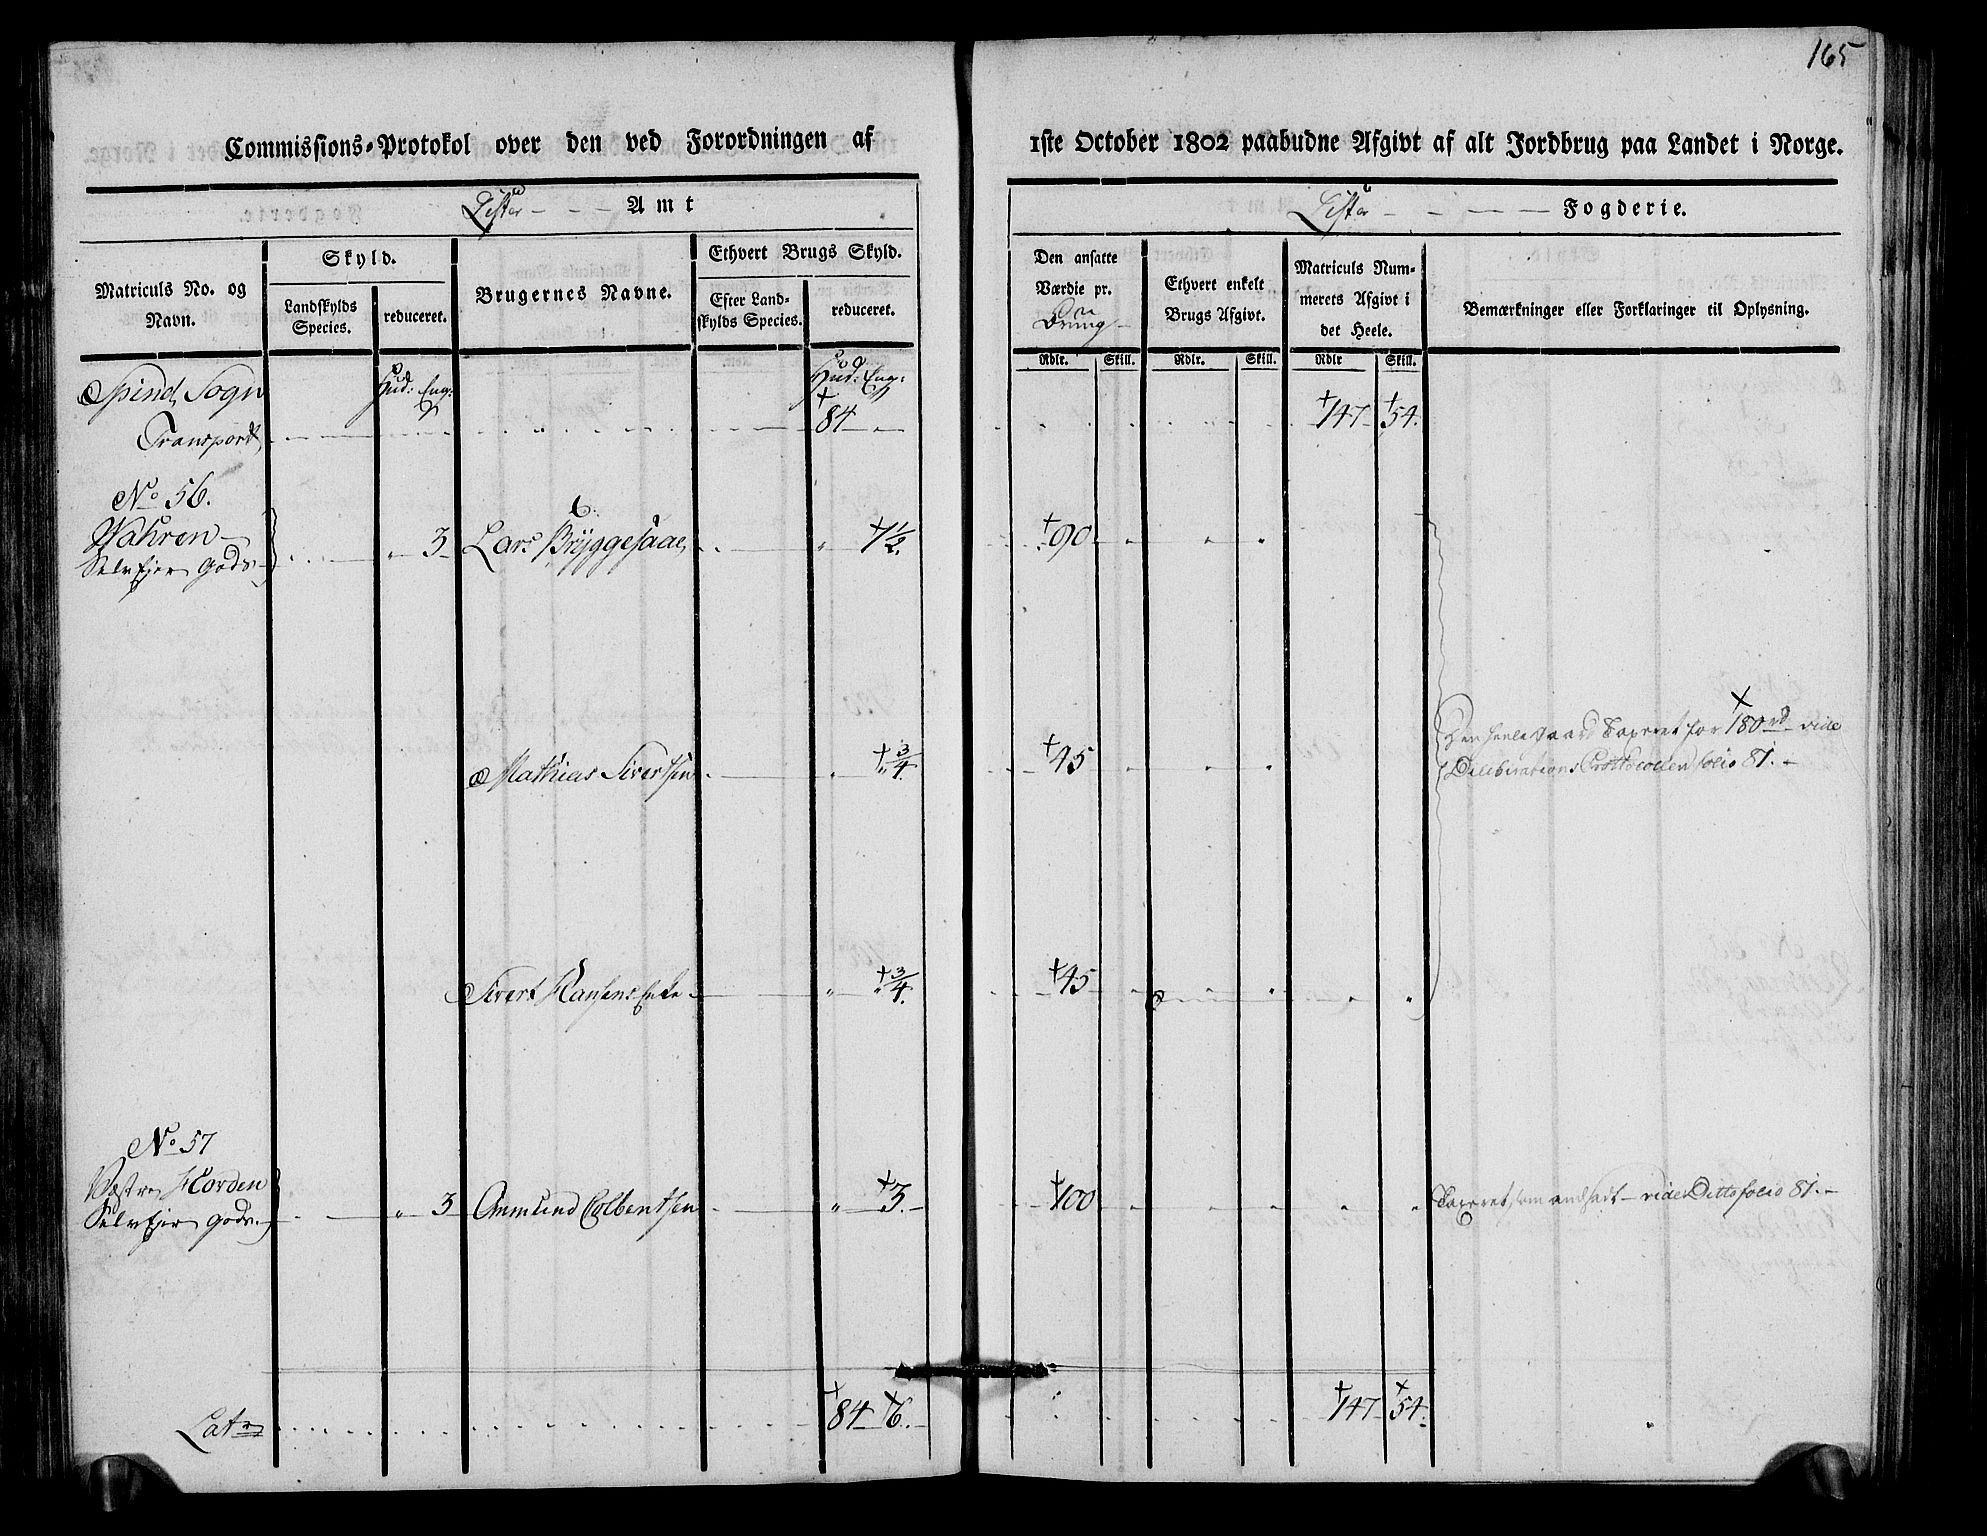 165
Commissions-Protokol over den ved Forordningen af 1ste October 1802 paabudne Afgivt af alt Jordbrug paa Landet i Norge.
Lister - - - Amt
Lister - - - Fogderie.
Matriculs No. og Navn.
Skyld.
Landskylds Species.
reduceret.
Brugernes Navne.
Ethvert Brugs Skyld.
Efter Landskylds Species.
reduceret.
Den ansatte Værdie pr.
Ethvert enkelt Brugs Afgivt.
Matriculs Nummerets Afgivt i det Heele.
Bemærkninger eller Forklaringer til Oplysning.
Rdlr. Skill. Rdlr. Skill. Rdlr Skill.
Spind Sogn Hud: Eng: Hud: Eng:
Transport 84 - 147 54.
No 56.
Wahren
Selveier Gods 3 Lars Bryggesaae 1 1/2. 90
Mathias Sivertsen 3/4 45
Den heele Gaard Taxeret for 180 rd vide
Deliberations Protocollen folio 81. -
Sivert Hansens Enke 3/4. 45
No 57
Vestre Horden
Selveier Gods. 3 Ammund Colbentsen 3. 100 Taxeret som andsadt - vide Ditto folio 81. -
Lat 84 6. 147 54.